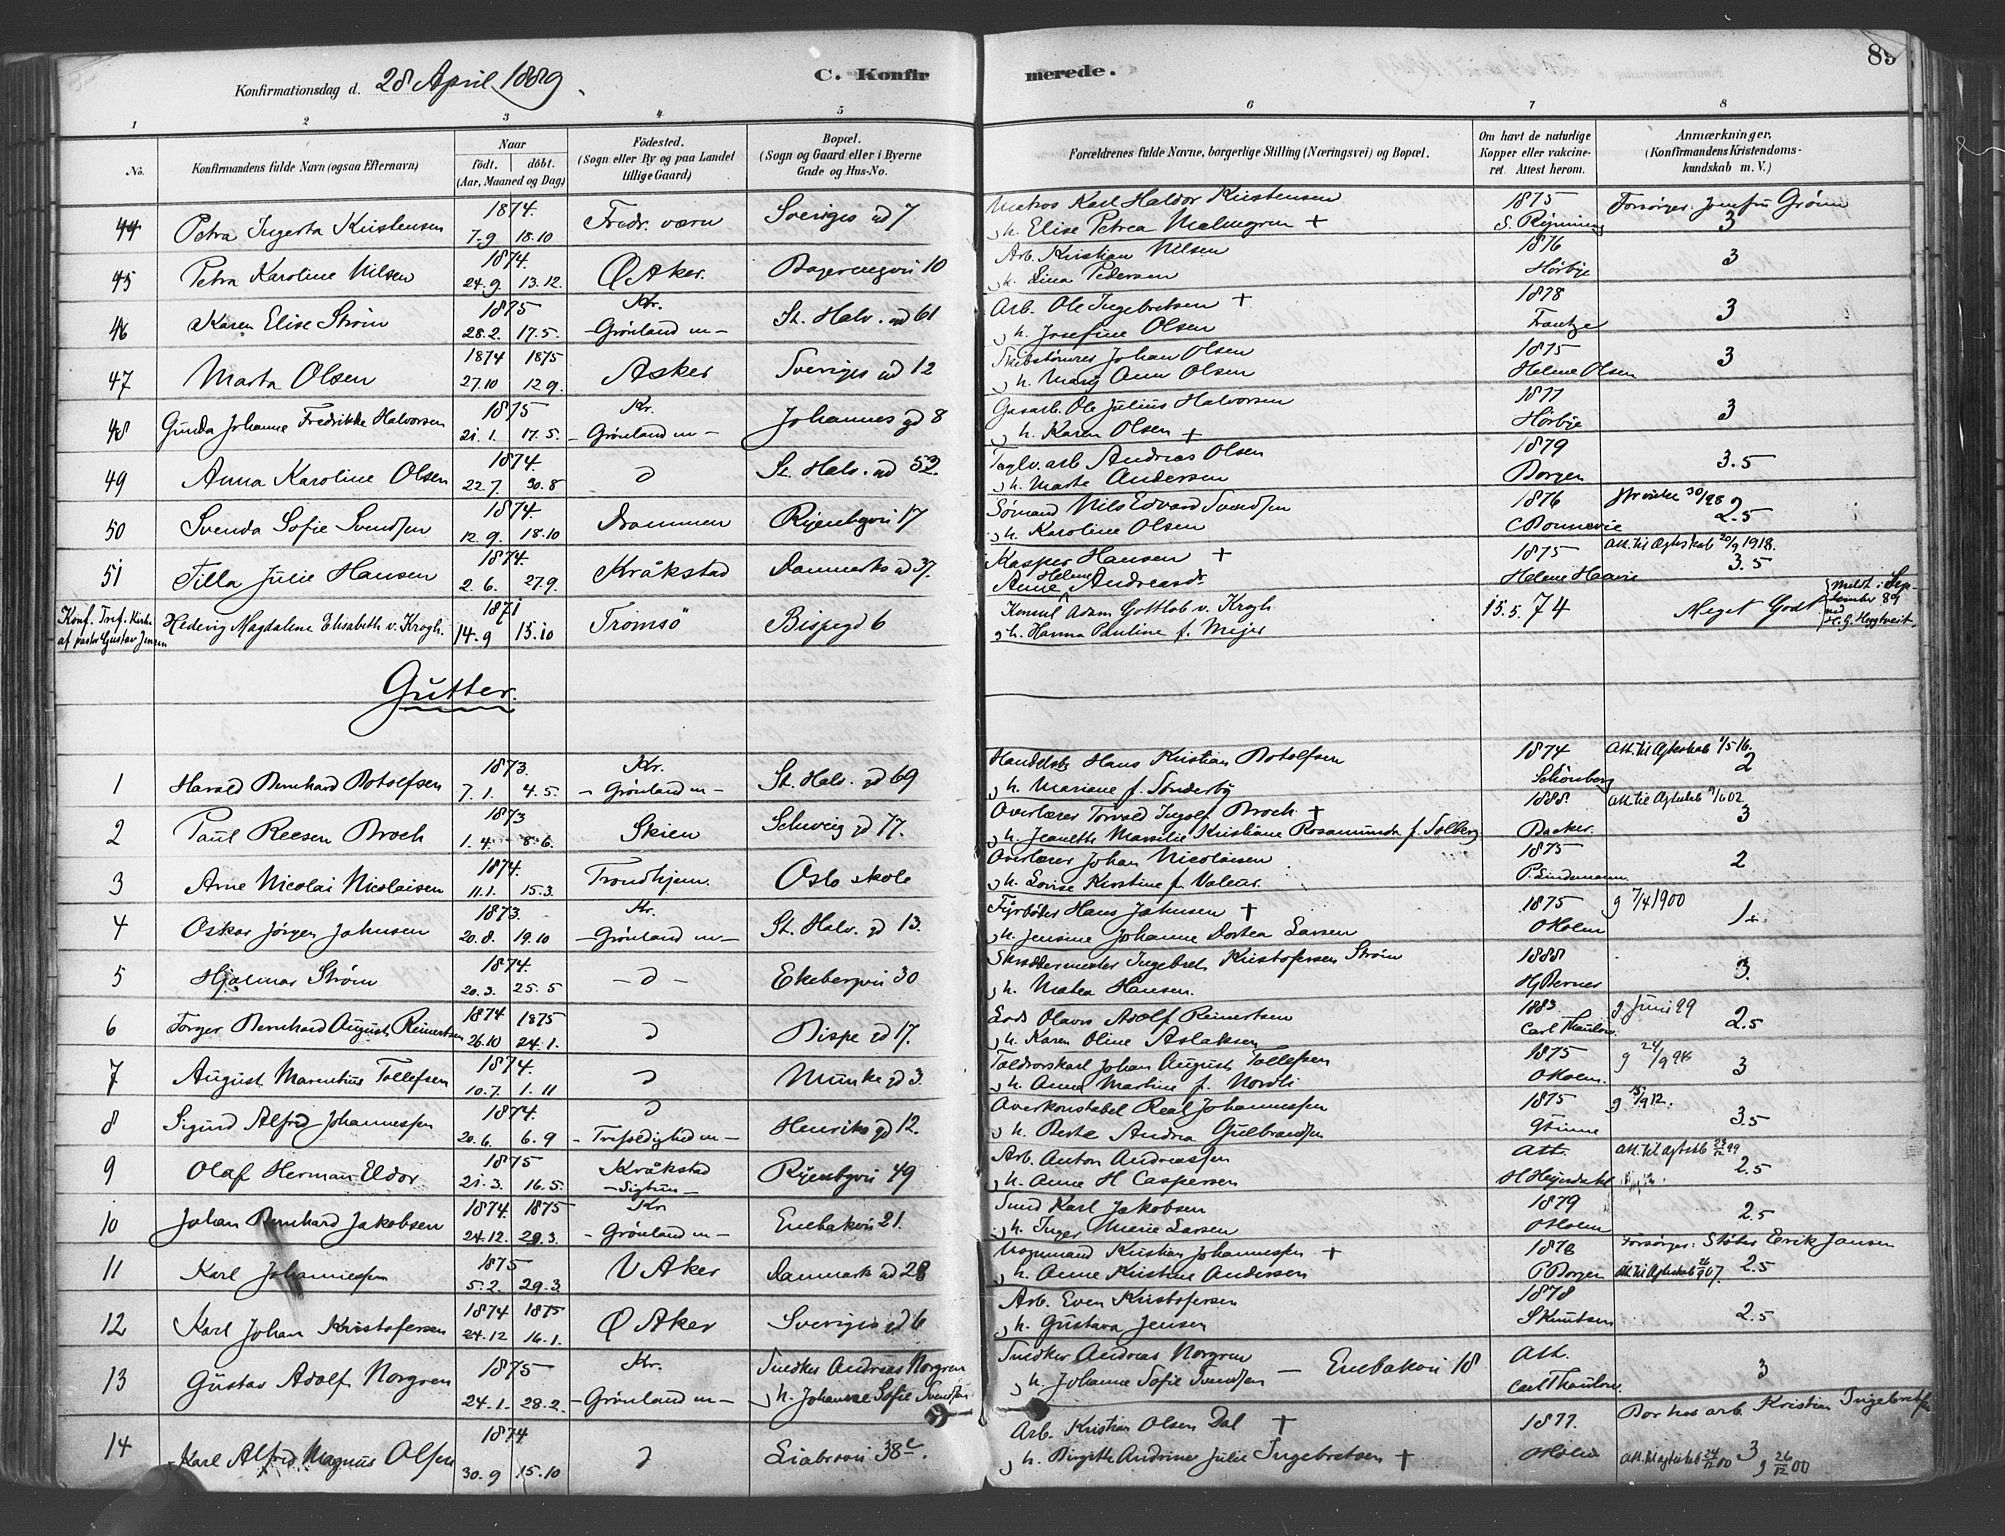 89
Konfirmationsdag d. 28 April 1889.
C. Konfirmerede.
1 2 3 4 5 6 7 8
No.
Konfirmandens fulde Navn (ogsaa Efternavn)
Naar
födt. döbt.
(Aar, Maaned og Dag)
Födested.
(Sogn eller By og paa Landet tillige Gaard)
Bopæl.
(Sogn og Gaard eller i Byerne Gade og Hus-No.
Forældrenes fulde Navne, borgerlige Stilling (Næringsvei) og Bopæl.
Om havt de naturlige Kopper eller vakcineret. Attest herom.
Anmærkninger.
(Konfirmandens Kristendomskundskab m. V.)
44 Petra Ingerta Kristensen 1874. 7-9 18.10 Fredr. værn Sveriges gd 7 Matros Karl Haldor Kristensen 1875 Forsørger: Jomfru Grønn
h. Elise Petrea Malmgren + 3
45 Petra Karoline Nilsen 1874. 24.9. 13.12. Ø Aker. 10 Arb. Kristian Nilsen 1876 3
h. Lina Pedersen Hörbye
46 Karen Elise Strøm 1875 28.2. 17.5. Kr. Grønland m St. Halv. gd 61 Arb. Ole Ingebretsen + 1878 3
h. Josefine Olsen Frantze
47 Marta Olsen 1874 1875 27.10 12.9. Asker Sveriges gd 12 Johan Olsen 1875 3
h. Mary Ann Olsen Helene Olsen
48 Gunda Johanne Fredrikke Halvorsen 1875 21.1. 17.5. Kr. Grønland m Johannes gd 8 Gasarb. Ole Julius Halvorsen 1877 3
h. Karen Olsen + Hörbye
49 Anna Karoline Olsen 1874. 22.7. 30.8 St. Halv. gd 52. Teglv. arb Andreas Olsen 1879 3.5
h. Marte Andersen Borgen
50 Svenda Sofie Svendsen 1874. 12.9. 18.10 Drammen Ryenbgvei 17 Sømand Nils Edvard Svendsen 1876 2.5
h. Karoline Olsen C Bonnevie
51 Tilla Julie Hansen 1874. 2.6. 27.9. Kråkstad Danmarks gd 37. Kasper Hansen + 1875 Att. til Ægteskab 20/9 1918. 3.5
Anne Helene Andreasdr Helene Haavie
Konf. Tref. Kirke af pastor Gustav Jensen Hedevig Magdalene Elisabeth v. Krogh. 1871 14.9 15.10 Tromsö Bispegd 6 Konsul Adam Gottlob v. Krogh 15.5.74 Meget Godt Meldt i September 89
h. Hanna Pauline f. Mejer
Gutter.
1 Harald Bernhard Botolfsen 1873. 7.1. 4.5. Kr. Grønland m St. Halv. gd 69 Hans Kristian Botolfsen 1874 Att. til Ægteskab 1/5 16. 2
h. Mariane f. Sønderby Schönberg
2 Paul Reesen Broch 1873 1.4. 8.6. Skien Schweig gd 77. Overlærer Torvald Ingolf Broch + 1888. 3
h. Jeanette Massilie Kristiane Rosamunda f. Solberg Backer.
3 Arne Nicolai Nicolaisen 1874. 11.1. 15.3. Trondhjem. Oslo skole Overlærer Johan Nicolaisen 1875 2
h. Lovise Kirstine f. Valeur. P. Lindemann.
4 Oskar Jørgen Jahnsen 1873. 20.8. 19.10 Kr. Grønland m St. Halv. gd 13. Fyrbøter Hans Jahnsen + 1875 g 7/4 1900 1
h. Jensine Johanne Dortea Larsen O Holm
5 Hjalmar Strøm 1874. 20.3. 25.5 Ekebergvei 30 Skræddermester Ingebret Kristofersen Strøm 1888 3
h. Matea Hansen. Hj Berner
6 Torger Bernhard August Reinertsen 1874 1875 26.10 24.1. Bispe gd 17. Lods Olaus Adolf Reinertsen 1883 g Juni 99 2.5
h. Karen Oline Aslaksen Carl Thaulow.
7 August Marentius Tollefsen 1874. 10.7. 1.11 Munke gd 3. Toldvorskarl Johan August Tollefsen 1875 g 24/9 98 3
h. Anna Martine f. Nordli O Holm.
8 Sigurd Alfred Johannessen 1874. 20.6. 6.9 Trefoldighed m Henriks gd 12. Overkonstabel Real Johannessen 1875 g 15/9 12. 3.5
h. Berte Andrea Gulbrandsen
9 Olaf Herman Eldor 1875 21.3. 16.5. Kråkstad Ryenbgvei 49 Arb. Anton Andreassen Att. 2.5
h. Anne H Caspersen
10 Johan Bernhard Jakobsen 1874. 1875 24.12. 29.3. Kr Grønland m Enebakvei 21. Karl Jakobsen 1879 2.5
h. Inger Marie Larsen O Holm
11 Karl Johannessen 1875 5.2. 29.3. V Aker Danmarks gd 28 Kristian Johannessen + 1878 Forsørger: Støber Erik Jansen
h. Anne Kristine Andersen P Borgen 2.5
12 Karl Johan Kristofersen 1874 1875 24.12 16.1. Ø Aker Sveriges gd 6 Arb. Even Kristofersen 1878 2.5
h. Gustava Jensen S Knutsen
13 Gustav Adolf Norgren 1875 24.1. 28.2. Kr. Grønland m Snedker Andreas Norgren h. Johanne Sofie Svendsen Snedker Andreas Norgren Enebakvei 18 Att. 3
h. Johanne Sofie Svendsen Carl Thaulow.
14 Karl Alfred Magnus Olsen 1874 30.9 15.10 Liabrovei 38c. Arb. Kristian Olsen Dal + 1877. Bor hos arb. Kristian Ingebretsen
h. Birgitte Andrine Julie Ingebretsen + 3 g 26/12 00